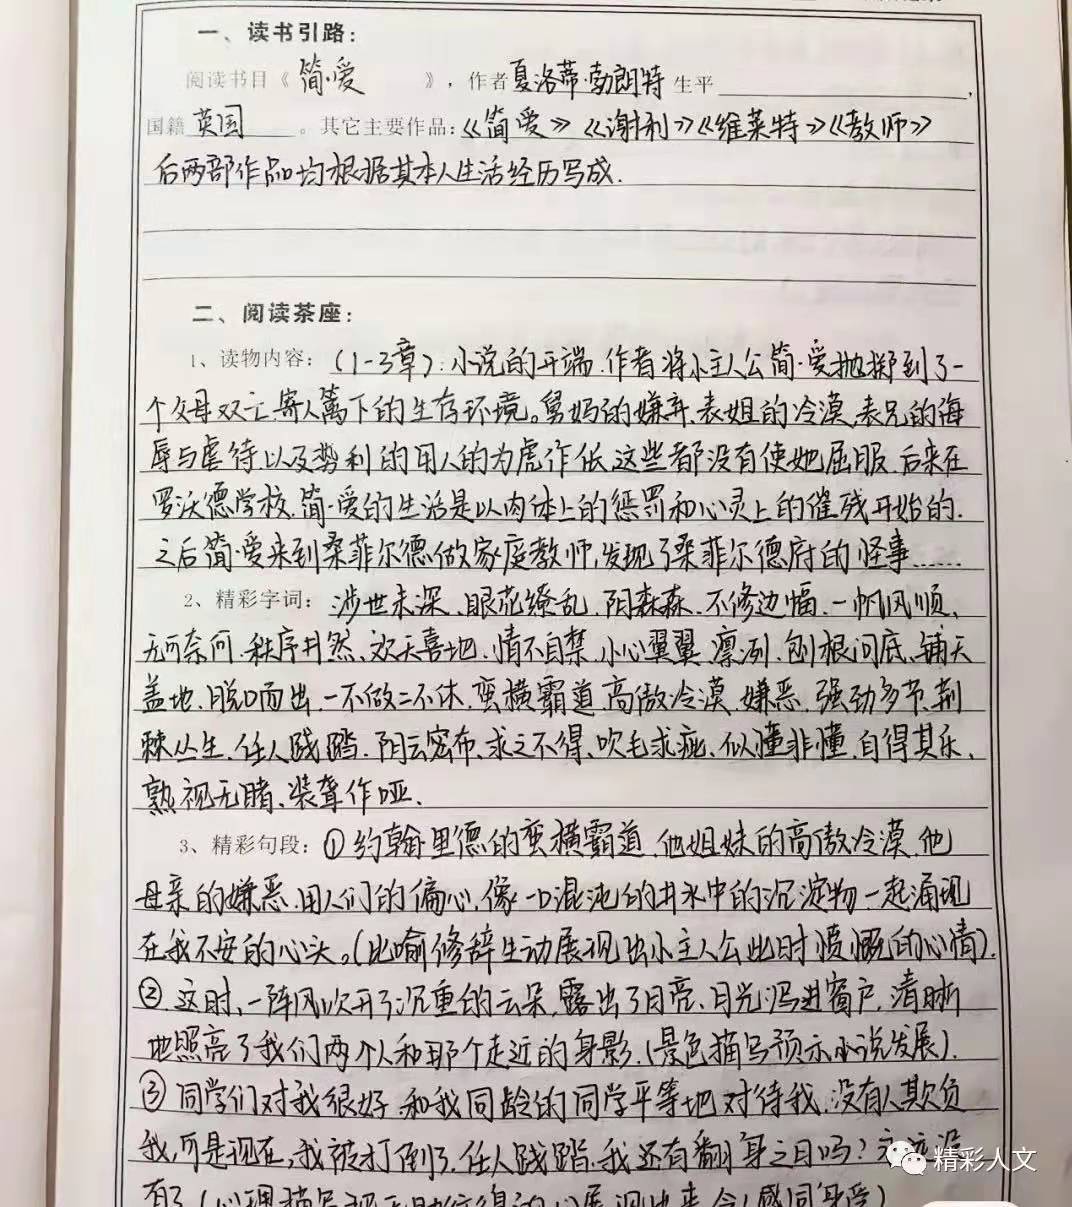 一、读书引路：
阅读书目《 简·爱 》，作者夏洛蒂·勃朗特 生平
国籍 英国 。其它主要作品：《简爱》《谢利》《维莱特》《教师》
后两部作品均根据其本人生活经历写成.
二、阅读茶座：
1、读物内容：(1-3章)：小说的开端.作者将小主人公简·爱抛掷到了一
个父母双亡.寄人篱下的生存环境。舅妈的嫌弃.表姐的冷漠,表兄的侮
辱与虐待以及势利的用人的为虎作伥.这些都没有使她屈服.后来在
罗沃德学校.简·爱的生活是以肉体上的惩罚和心灵上的催残开始的.
之后简·爱来到桑菲尔德做家庭教师,发现了桑菲尔德府的怪事……
2、精彩字词：涉世未深、眼花缭乱、阴森森、不修边幅、一帆风顺、
无可奈何、秩序井然、欢天喜地、情不自禁、小心翼翼、凛冽、刨根问底、铺天
盖地、脱口而出、一不做二不休、蛮横霸道、高傲冷漠、嫌恶、强劲多节、荆
棘丛生、任人践踏、阴云密布、求之不得、吹毛求疵、似懂非懂、自得其乐、
熟视无睹、装聋作哑.
3、精彩句段：①约翰·里德的蛮横霸道.他姐妹的高傲冷漠.他
母亲的嫌恶.用人们的偏心.像一口混沌的井水中的沉淀物一起涌现
在我不安的心头。(比喻修辞生动展现出小主人公此时愤慨的心情).
②.这时,一阵风吹开了沉重的云朵,露出了月亮.月光泻进窗户,清晰
地照亮了我们两个人和那个走近的身影.(景色描写预示小说发展).
③同学们对我很好.和我同龄的同学平等地对待我.没有人欺负
我,可是现在,我被打倒了.任人践踏.我还有翻身之日吗？永远没
有了
精彩人文